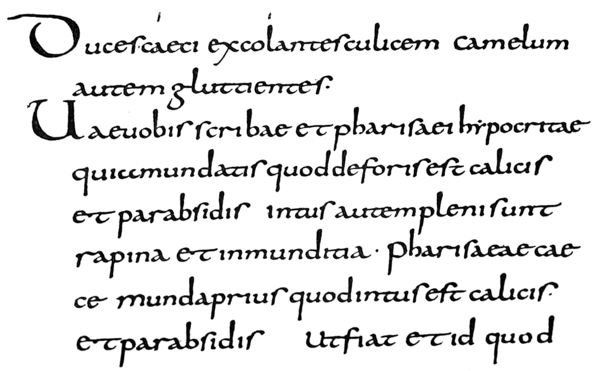 Ducescaeci excolantesculicem camelum
autem gluttientes·
Uaeuobis scribae et pharisaei hypocritae
quiamundatis quoddeforisest calicis
et parabsidis intus autemplenisunt
rapina et inmunditia · pharisaeae cae
ce mundaprius quodintusest calicis·
et parabsidis ut fiat et id quod